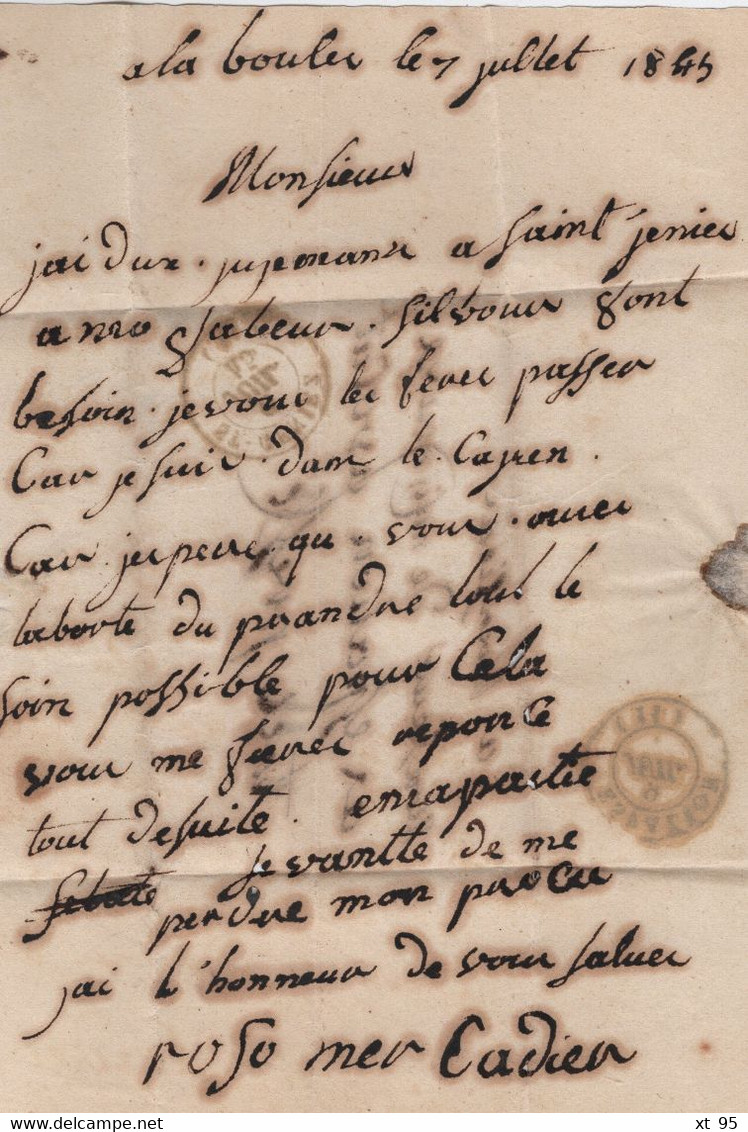 a la boulei le 7 jullet 1845
Monsieur
jai dux jujemans a saint jenier
a nro S labeur silvour sont
besoin je vour lei ferei passer
Car je suir dans le Cajren
Car jespere qu vour aurei
laborte du prandre tout le
soin possible pour Cela
vour me fairei reponse
tout desuite enrapartie
je vantte de me
perdre mon proce
jai l'honneur de vour saluer
roso mer Cadier
xt 95